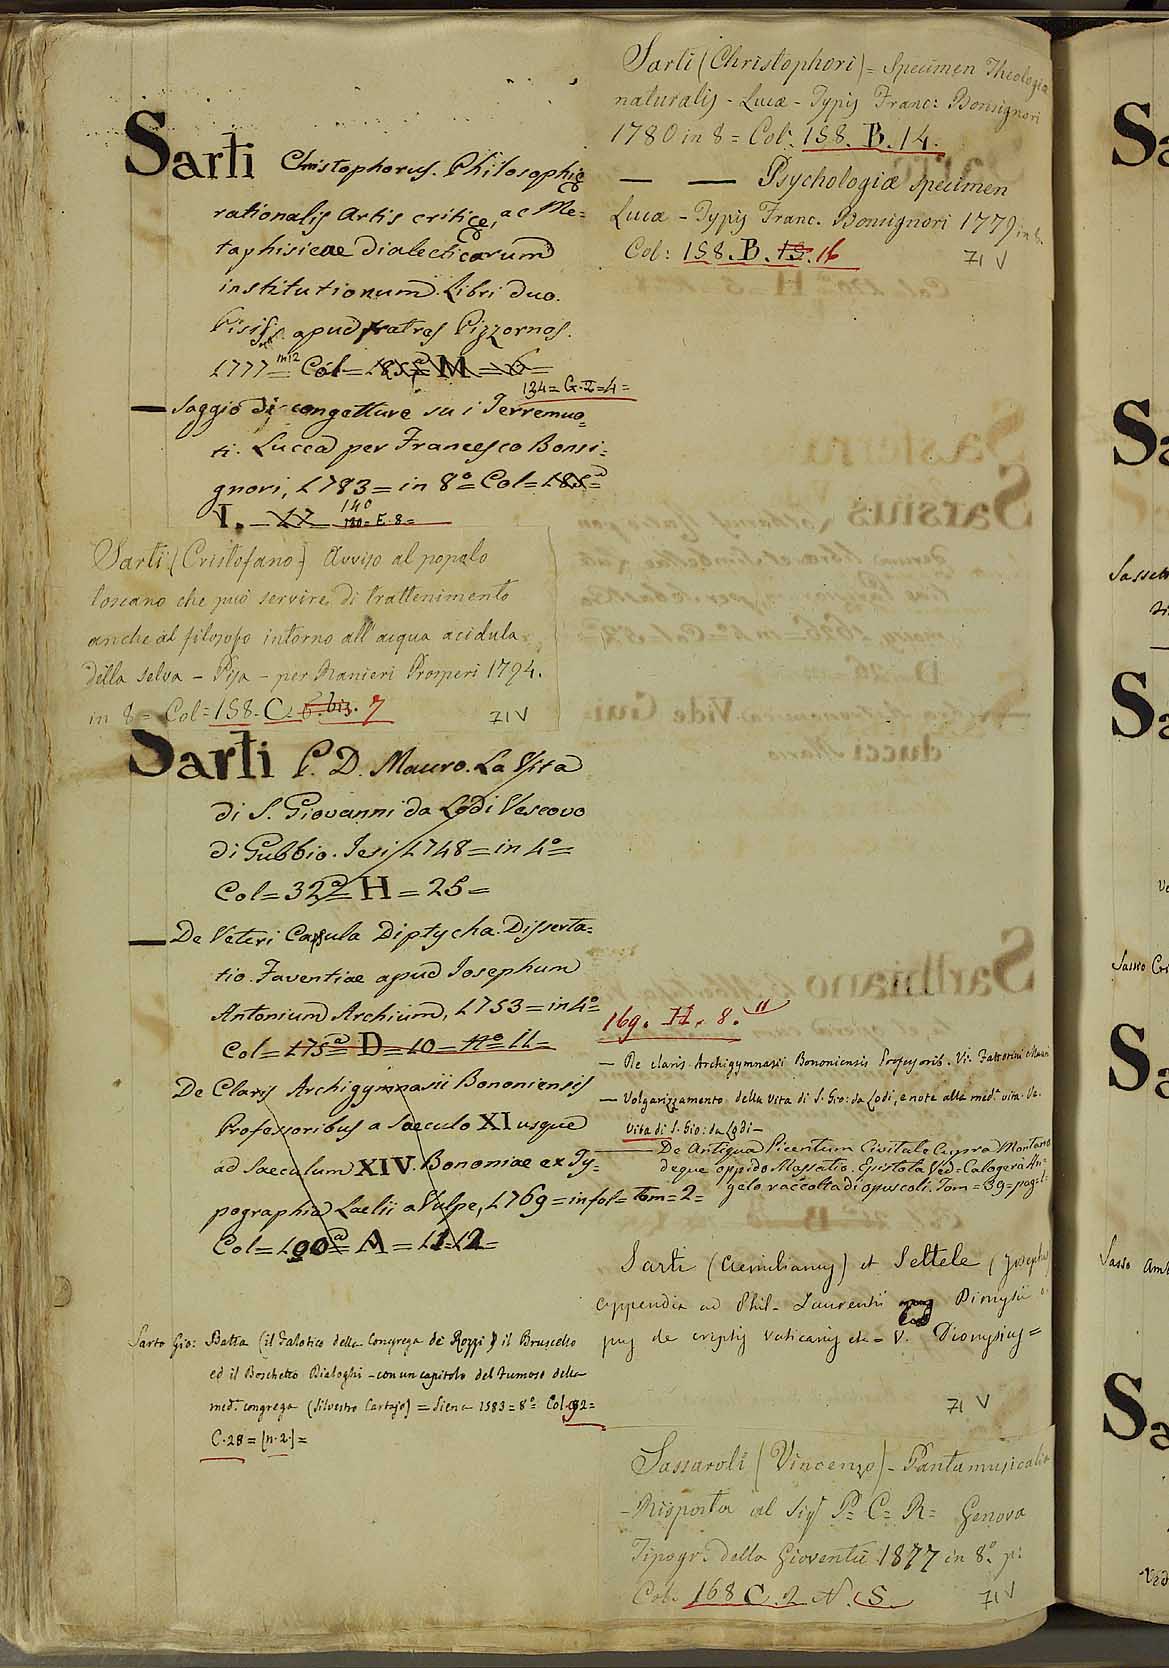 Sarti Christophorus. Philosophiæ
rationalis Artis criticæ, ac Me=
taphisicae Dialecticarum
institutionum. Libri duo.
Pisis apud fratres Pizzornos.
1777= in 12 Col= 185ª= M = 6=
134= G.I=4=
— Saggio di congetture su i Terremuo=
ti. Lucca per Francesco Bonsi=
gnori, 1783= in 8º= Col= 185ª=
I. = 17 140 E.8=
Sarti (Cristofano) Avviso al popolo
toscano che può servire di trattenimento
anche al filosofo intorno all'acqua acidula
della selva - Pisa - per Ranieri Prosperi 1794.
in 8= Col= 158. C. 6.bis. 7
71 V
Sarti P. D. Mauro. La Vita
di S. Giovanni da Lodi Vescovo
di Gubbio. Jesi 1748= in 4º=
Col= 32ª= H = 25=
— De Veteri Casula Diptycha. Disserta=
tio. Faventiae apud Josephum
Antonium Archium, 1753= in 4º
Col= 175ª= D= 10= nº 11=
De Claris Archigymnasii Bononiensis
Professoribus a Saeculo XI usque
ad Saeculum XIV. Bononiae ex Ty=
pographia Laelii a Vulpe, 1769= in fol= Tom=2=
Col= 190ª= A = 11.12=
Sarto Gio: Batta (il Falotico della Congrega de Rozzi) il Bruscello
ed il Boschetto Dialoghi - con un capitolo del tumoso della
med. congrega (Silvestro Cartajo) = Siena 1583= 8º= Col. 92=
C.28= [n.2.]=
Sarti (Christophori)= Specimen Theologiæ
naturalis - Lucæ - Typis Franc: Bonsignori
1780 in 8= Col: 158. B. 14.
— — Psychologiæ specimen
Lucæ - Typis Franc. Bonsignori 1779 in 8.
Col: 158. B. 15. 16
71 V
169. H. 8. 11
— De claris Archigymnasii Bononiensis Professorib. Vi. Fattorini Mauri
— Volgarizzamento della vita di S. Gio: da Lodi, e note alla med. vita. Ve.
Vita di S. Gio: da Lodi—
— De Antiqua Picentum Civitate Cupra Montana
deque oppido Massatio. Epistola Ved= Calogerà An=
gelo raccolta di opuscoli. Tom=39=pag.1=
Sarti (Aemilianus) et Settele (Josephus)
Appendix ad Phil- Laurentii Dionysii
de cryptis Vaticanis etc= V. Dionysius=
71 V
Sassaroli (Vincenzo)- Pantamusicali
-Risposta al Sigr P= C= R= Genova
Tipogr. della Gioventù 1877 in 8º. p:
Col. 168 C. 2 N. S.
71 V